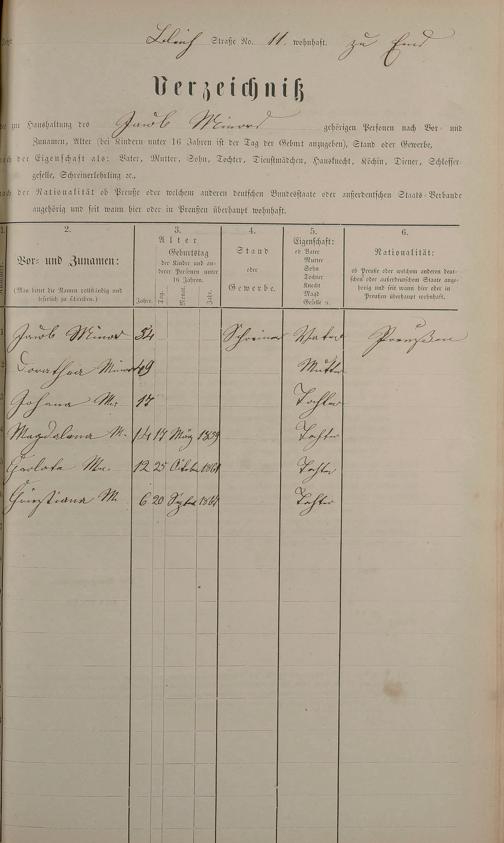 Bleich Straße No. 11. wohnhaft. zu Ems
Verzeichniß
zur Haushaltung des Jacob Minor gehörigen Personen nach Vor- und
Zunamen, Alter (bei Kindern unter 16 Jahren ist der Tag der Geburt anzugeben), Stand oder Gewerbe,
nach der Eigenschaft als: Vater, Mutter, Sohn, Tochter, Dienstmädchen, Hausknecht, Köchin, Diener, Schlosser-
geselle, Schreinerlehrling ꝛc.,
nach der Nationalität ob Preuße oder welchem anderen deutschen Bundesstaate oder außerdeutschen Staats-Verbande
angehörig und seit wann hier oder in Preußen überhaupt wohnhaft.
1. 2. 3. 4. 5. 6.
Vor- und Zunamen:
(Man bittet die Namen vollständig und
leserlich zu schreiben.)
Alter
Geburtstag
der Kinder und an-
derer Personen unter
16 Jahren.
Jahre. Tag. Monat. Jahr.
Stand
oder
Gewerbe.
Eigenschaft:
ob Vater
Mutter
Sohn
Tochter
Knecht
Magd
Geselle
Nationalität:
ob Preuße oder welchem anderen deut-
schen oder außerdeutschen Staate ange-
hörig und seit wann hier oder in
Preußen überhaupt wohnhaft.
Jacob Minor 54 Schreiner Vater Preußen
Dorathea Minor 49 Mutter
Johana M. 17 Tochter
Magdalena M. 14 17 März 1859 Tochter
Carlota M. 12 25 October 1861 Tochter
Christiana M. 6 20 Tochter